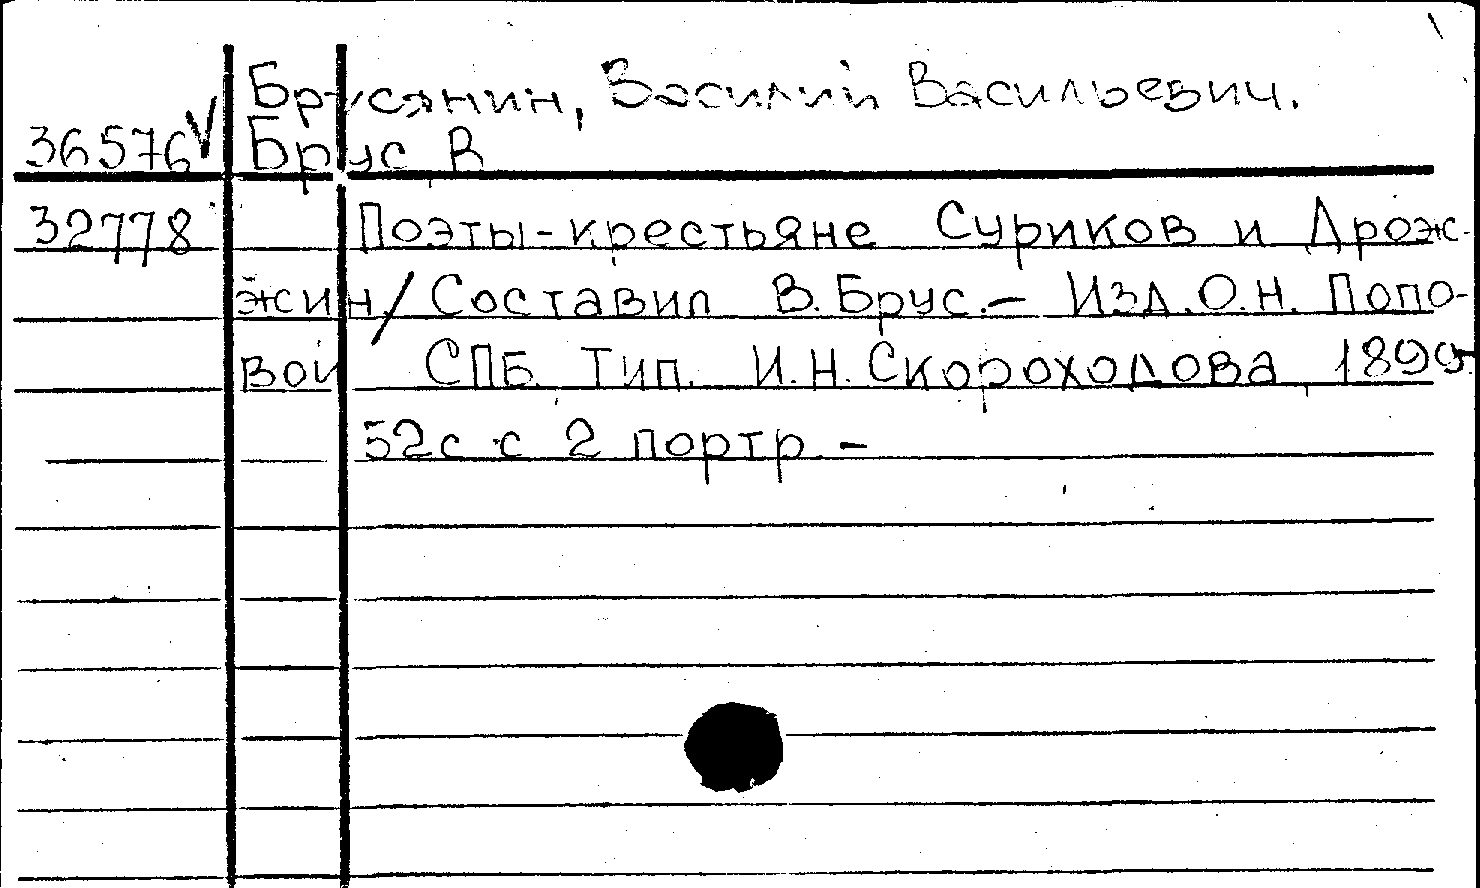 Брусянин, Василий Васильевич.
36576 V Брус, В
32778 Поэты-крестьяне Суриков и Дрож-
жин / Составил В. Брус. – Изд. О.Н. Попо-
вой СПБ. Тип. И.Н. Скороходова, 1899.
52с с 2 портр. –